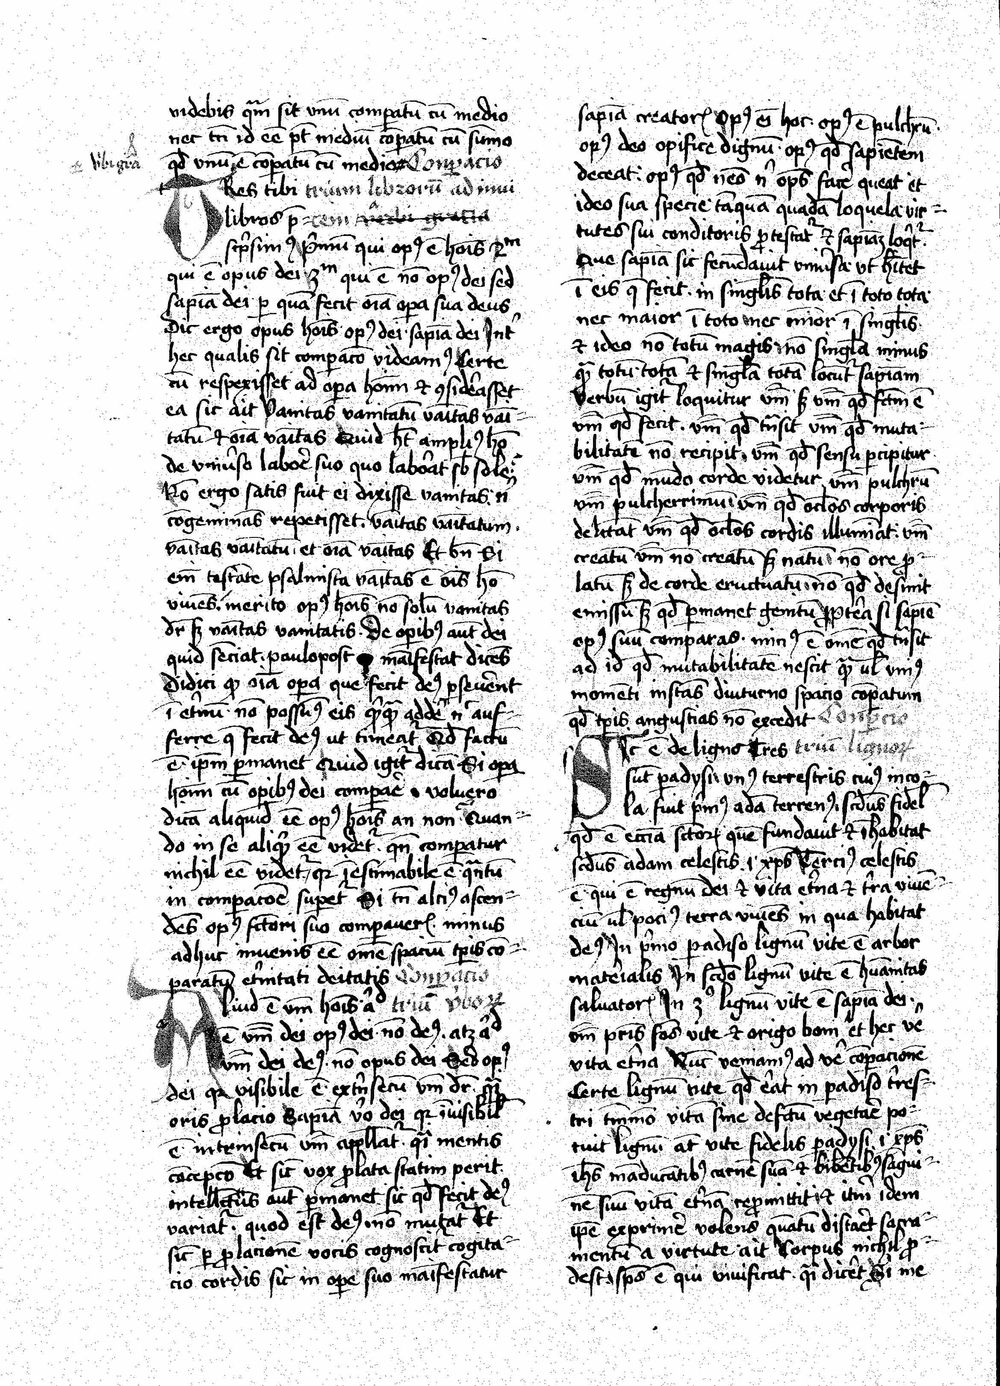 videbis qm̄ sit vnū compatū cū medio
nec tn̄ id eē pt̄ mediū cōpatū cū sumo
qd̄ vnū ē cōpatū cū medio Conpacio
v̄bi gr̄a
Res tibi trium librorū ad inui
libros p̄ cem v̄rbi gracia
scp̄simꝰ p̄mū qui opꝰ ē hoīs 2m
qui ē opus dei 3m qui ē nō opꝰ dei sed
sapīa dei p quā fecit oīa opa sua deus
Sic ergo opus hoīs opꝰ dei sapīa dei Int̄
hec qualis sit compacō videamꝰ Certe
cū respexisset ad opa homī et ꝯsiderasset
ea sic ait Vanitas vanitatū vaītas vaī-
tatū et oīa vaītas Quid hȝ ampliꝰ hō
de vniūso labore suo quo laborat sb sole
Nō ergo satis fuit ei dixisse vanitas n̄
cōgeminās repetisset vaītas vaītatum
vaītas vaītatū et oīa vaītas Et bn̄ Si
eīn testāte psalmista vaītas ē oīs hō
viuēs merito opꝰ hoīs nō solū vanitas
dr̄ sȝ vaītas vanitatis De opibꝰ aūt dei
quid senciat paulopost māifestat dicēs
Didici qꝫ oīa opa que fecit deꝰ pseuērt
ī etn̄ū nō possumꝰ eis qͥcqͣ adde n̄ auf-
ferre q̄ fecit deꝰ ut timeatr̄ Qd̄ factū
ē ipm̄ pmanet Quid igitr̄ dicā Si opa
homī cū opibꝰ dei compare voluero
dicā aliquid eē opꝰ hoīs an non Quan-
do in se aliqͥd eē videtr̄ qn̄ compatur
nichil eē videtr̄ qr̄ īestimabile ē qn̄tū
in compacōe supetr̄ Si tn̄ alciꝰ ascen-
dēs opꝰ fctōri suo compauerꝭ minus
adhuc inuenis eē omē spaciū tp̄is cō-
patū et̄nitati deitatis Conpacio
Aliud ē vm̄ hoīs ad triū v̄borꝝ
ē vm̄ dei opꝰ dei nō deꝰ atꝫ ad
vm̄ dei deꝰ nō opus dei Sed opꝰ
dei qr̄ visibile ē ext̄nsecū vm̄ dr̄ qr̄
oris placio Sapīa v̄o dei qr̄ īuisibil̄
ē intrinsecū vm̄ appllatr̄ qͣi mentis
cōcepcō Et sic vox plata statim perit
intellectus aūt pmanet sic qd̄ fecit deꝰ
variatr̄ quod est deꝰ nō mutatr̄ Et
sic p placionē vocis cognoscit cogita-
cio cordis sic in ope suo māifestatur
sapīa creatorꝭ Opꝰ eī hoc opꝰ ē pulchrū
opꝰ deo opifice dignū opꝰ qd̄ sapietem
deceat opꝰ qd̄ nēo n̄ opˢ face queat et
ideo sua specie tāquā quadā loquela vir-
tutes sui conditoris ptestatr̄ et sapiāȝ loqtr̄
Que sapīa sic fecūdauit vniūsa ut hītet
ī eis q̄ fecit in singlīs tota et ī toto tota
nec maior ī toto nec mīor ī singlīs
et ideo nō totū magis nō singla minus
qͣ totū totā et singla totā locutr̄ sapīam
Verbū igitr̄ loquitur vm̄ sȝ vm̄ qd̄ fctm̄ ē
vm̄ qd̄ fecit vm̄ qd̄ tn̄sit vm̄ qd̄ muta-
bilitatē nō recipit vm̄ qd̄ sensu pcipitur
vm̄ qd̄ mūdo corde videtur vm̄ pulchrū
vm̄ pulcherrimū vm̄ qd̄ oclōs corporis
delectat vm̄ qd̄ oclōs cordis illumīat vm̄
creatū vm̄ nō creatū sȝ natū nō ore p-
latū sȝ de corde eructuatū nō qd̄ desinit
emissū sȝ qd̄ pmanet genitū Ppterea si sapīe
opꝰ suū comparas nimꝰ ē ome qd̄ tn̄sit
ad id qd̄ mutabilitatē nescit qͣ ul̄ vniꝰ
momēti instās diuturno spacio cōpatum
qd̄ tp̄is angustias nō excedit Conpacio
Sic ē de ligno Tres triū lignorꝝ
sūt padysi vnꝰ terrestris cuiꝰ inco-
la fuit p̄mꝰ adā terrenꝰ scd̄us fidel̄
qd̄ ē eccīa sctōrꝝ que fundauit et īhabitat
scd̄us adam celestis i xp̄s Terciꝰ celestis
ē qui ē regnū dei et vita et̄na et t̄ra viuē-
ciū ul̄ pociꝰ terra viuēs in qua habitat
deꝰ In p̄mo padiso lignū vite ē arbor
materialis In scdō lignū vite ē hūanitas
saluatorꝭ In 3º lignū vite ē sapīa dei
vm̄ pris fōs vite et origo bonī et hec vē
vita et̄na Nūc veniamꝰ ad vē cōpacionē
Certe lignū vite qd̄ erat in padiso t̄res-
tri tm̄mō vitā sine defctū vegetare po-
tuit lignū at vite fidelis padysi i xp̄s
ih̄s māducātibꝰ carnē suā et bibētibꝰ sagui-
nē suū vitā et̄nā repmittit et itm̄ idem
ip̄e exprimere volens quātū distaret sacra-
mentū a virtute ait Corpus nichil p-
dest sp̄s ē qui viuificat qͣi diceret Si me